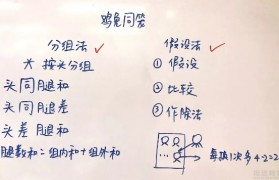 鸡兔同笼
分组法
大 按头分组
头同腿和
头同腿差
头差腿和
腿数和=组内和+组外和
假设法
① 假设
② 比较
③ 作除法
每换1次多4-2=2